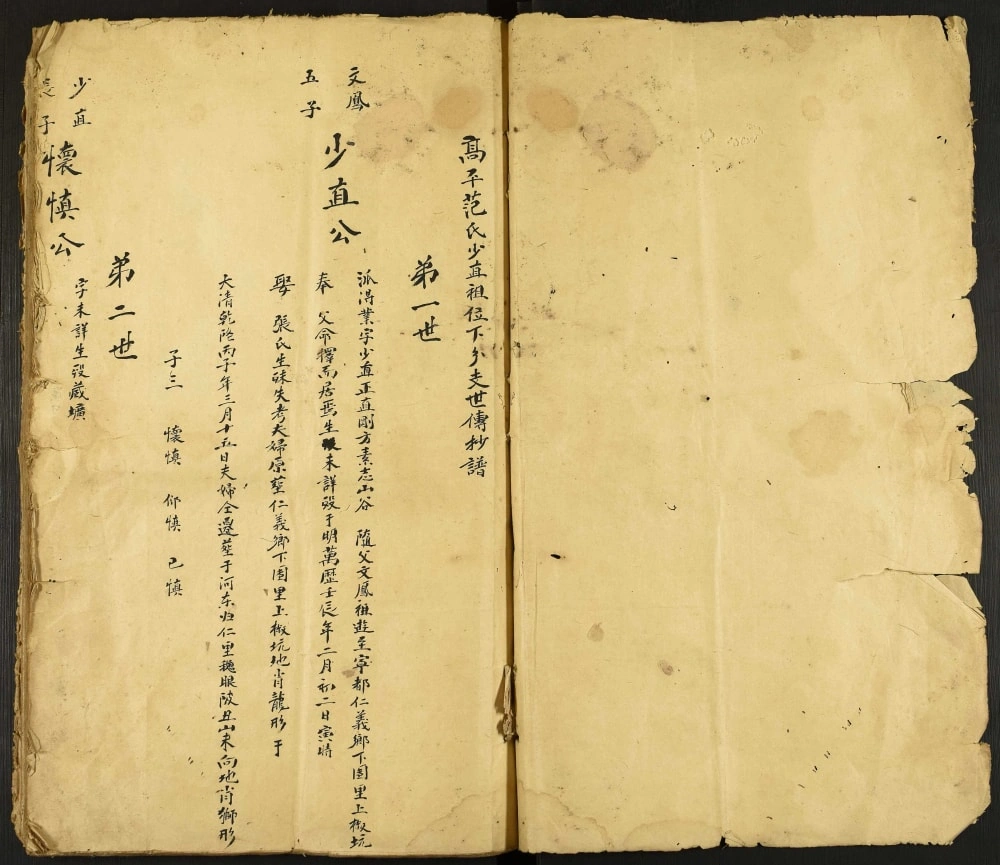 高平范氏少直祖位下分支世傳抄譜
第一世
文鳳
五子
少直公
派得業字少直正直剛方素志山谷 隨父文鳳祖遊至寧都仁義鄉下團里上椒坑
奉 父命擇而居焉生 未詳殁于明萬歷壬辰年二月初二日寅時
娶 張氏生殁失考夫婦原塟仁義鄉下團里上椒坑地肖龍形 于
大清乾隆丙子年三月十五日夫婦仝遷塟于河东归仁里 眼陂丑山未向地肖獅形
子三 懷慎 仰慎 己慎
第二世
少直
長子
懷慎公
字未詳生殁葳壙